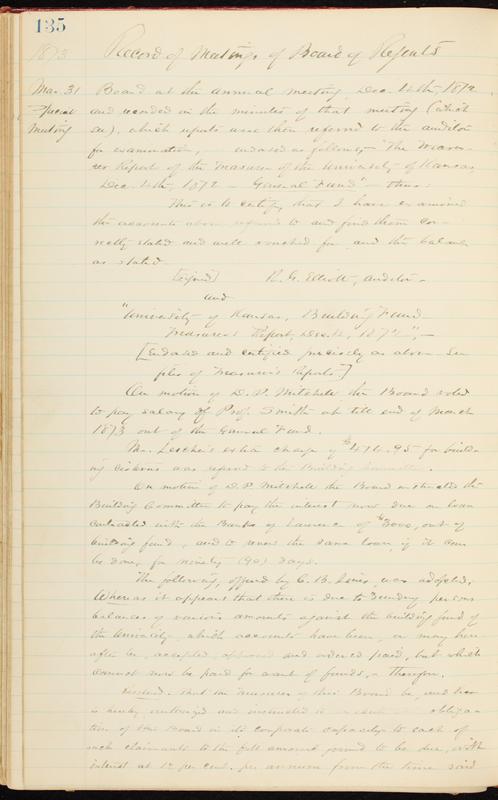 135
1873 Record of Meetings of Board of Regents
Mar. 31 Board at the annual meeting Dec. 4th, 1872
Special and recorded in the minutes of that meeting (which
Meeting see), which reports were then referred to the auditor
for examination, endorsed as follows, "The Treasurer
Report of the Treasurer of the University of Kansas
Dec. 4th, 1872 — General Fund" — thus:
This is to certify that I have examined
the accounts above referred to and find them cor-
rectly stated and well vouched for and the balance
as stated
[signed] R. G. Elliott, auditor.
and
"University of Kansas, Building Fund
Treasurer's Report, Dec. 4, 1872", —
[Endorsed and certified precisely as above. See
files of Treasurer's Reports]
On motion of D. P. Mitchell the Board voted
to pay salary of Prof. Smith up till end of March
1873 out of the General Fund.
Mr. extra charge of $414.95 for build-
ing cisterns was referred to the Building Committee.
On motion of D. P. Mitchell the Board instructed the
Building Committee to pay the interest now due on loan
contracted with the Banks of Lawrence of $3000, out of
building fund, and to renew the same loan, if it can
be done, for ninety (90) days.
The following, offered by C. B. Lines, was adopted,
Whereas it appears that there is due to sundry persons
balances of various amounts against the building fund of
the University, which accounts have been, or may here
after be, accepted, approved and ordered paid, but which
cannot now be paid for want of funds, therefore.
Resolved. That the Treasurer of this Board be, and he
is hereby authorized and instructed to obliga-
tion of the Board in its corporate capacity to each of
such claimants to the full amount found to be due, with
interest at 12 per cent. per annum from the time said